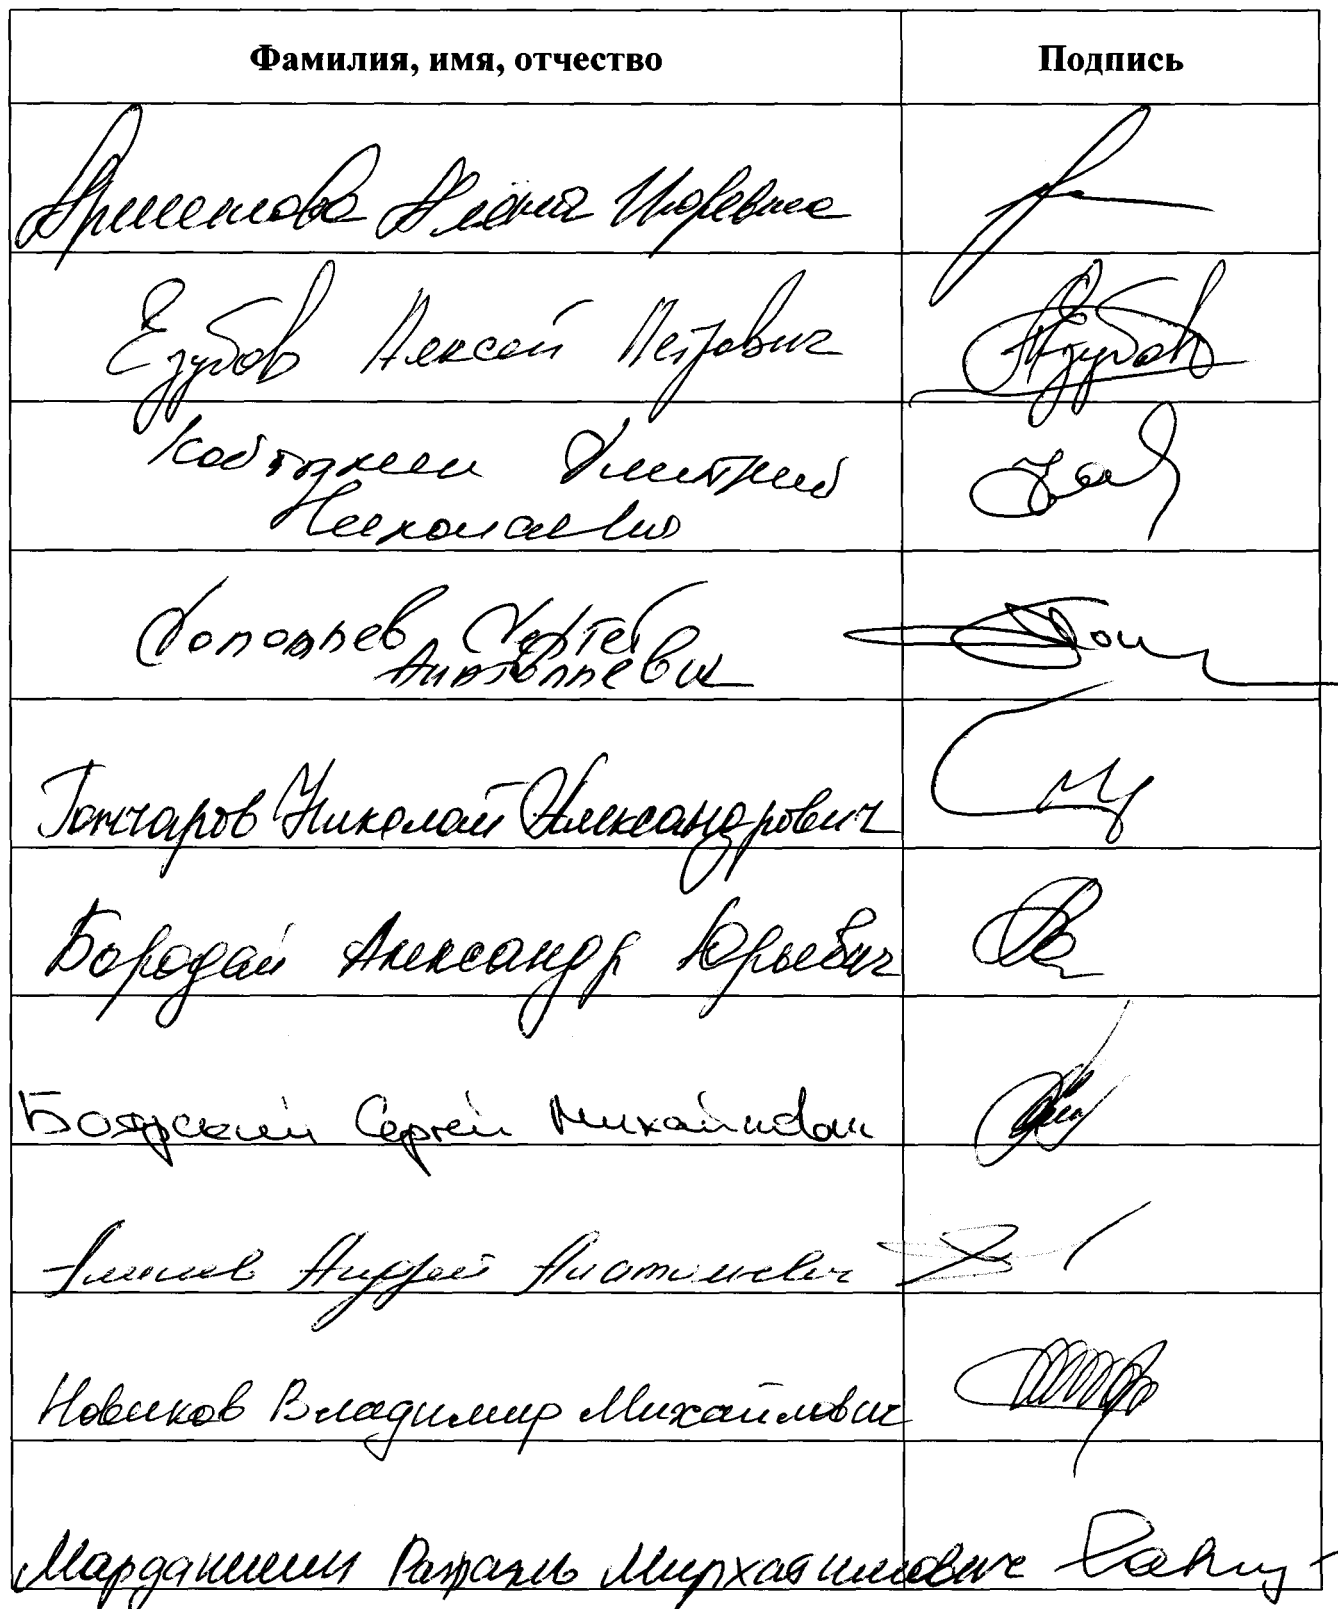 Фамилия, имя, отчество Подпись
Аршинова Алёна Игоревна
Езубов Алексей Петрович Езубов
Кобылкин Дмитрий
Николаевич
Сергей
Анатольевич
Гончаров Николай Александрович
Бородай Александр Юрьевич
Боярский Сергей Михайлович
Андрей Анатольевич
Новиков Владимир Михайлович
Марданшин Рафаэль Мирхатимович